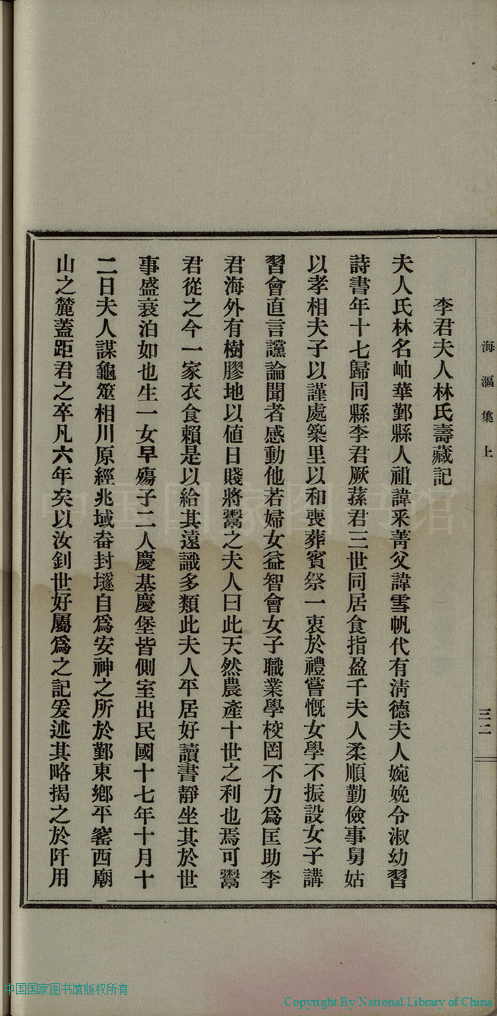 海漚集上
三二
李君夫人林氏壽藏記
夫人氏林名岫華鄞縣人祖諱釆菁父諱雪帆代有淸德夫人婉娩令淑幼習
詩書年十七歸同縣李君厥蓀君三世同居食指盈千夫人柔順勤儉事舅姑
以孝相夫子以謹處築里以和喪葬賓祭一衷於禮嘗慨女學不振設女子講
習會直言讜論聞者感動他若婦女益智會女子職業學校罔不力爲匡助李
君海外有樹膠地以値日賤將鬻之夫人曰此天然農產十世之利也焉可鬻
君從之今一家衣食賴是以給其遠識多類此夫人平居好讀書靜坐其於世
事盛衰泊如也生一女早殤子二人慶基慶堡皆側室出民國十七年十月十
二日夫人謀龜筮相川原經兆域畚封墜自爲安神之所於鄞東鄉平窰西廟
山之麓蓋距君之卒凡六年矣以汝釗世好屬爲之記爰述其略揭之於阡用
中国国家图书馆版权所有
Copyright By National Library of China